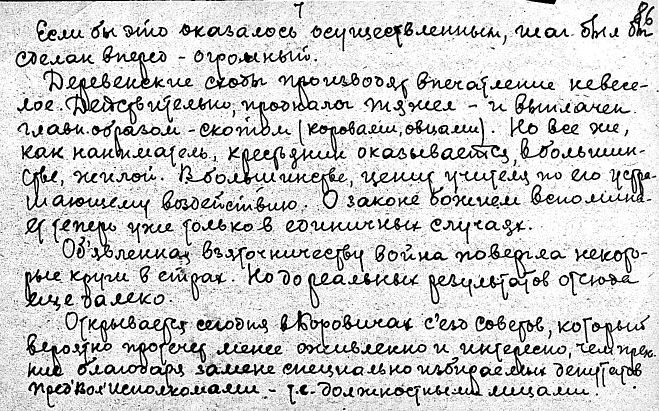 7
86
Если бы это оказалось осуществленным, шаг был бы
сделан вперед - огромный.
Деревенские сходы производят впечатление невесе-
лое. Действительно, продналог тяжел - и выплачен
главн. образом - скотом (коровами, овцами). Но все же,
как наниматель, крестьянин оказывается, в большин-
стве, жилой. В большинстве, ценит учителя по его устра-
шающему воздействию. О законе божием вспомина-
ет теперь уже только в единичных случаях.
Об'явленная взяточничеству война повергла некото-
рые круги в страх. Но до реальных результатов отсюда
еще далеко.
Открывается сегодня в Боровичах с'езд советов, который
вероятно протечет менее оживленно и интересно, чем преж-
ние благодаря замене специально избираемых депутатов
пред'вол'исполкомами - т.е. должностными лицами.